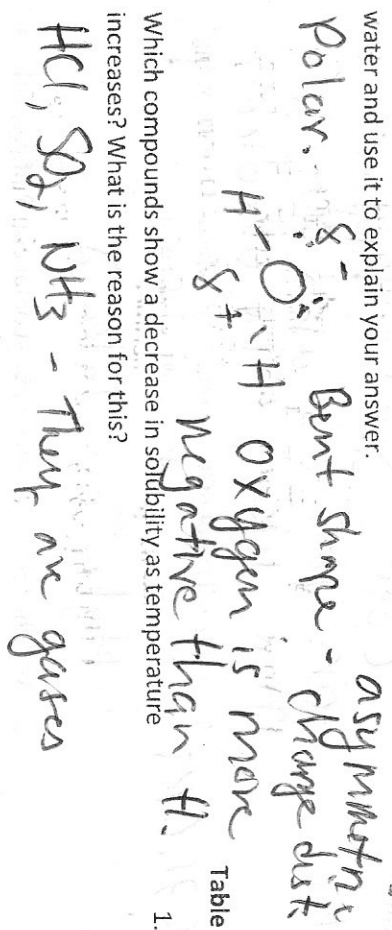 water and use it to explain your answer.
Polar. δ- Bent shape - asymmetric
charge dist.
H-O-H oxygen is more
δ+ negative than H.
Table
1.
Which compounds show a decrease in solubility as temperature
increases? What is the reason for this?
HCl, SO2, NH3 - They are gases